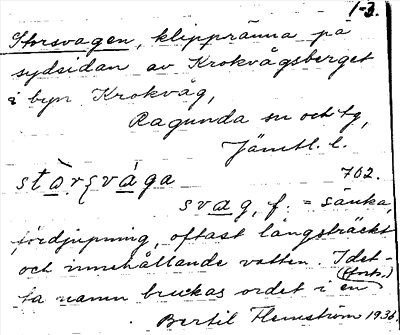 1-3.
Storsvagen, klippränna på
sydsidan av Krokvågsberget
i byn Krokvåg,
Ragunda sn och tg,
Jämtl. l.
702.
svag, f. = sänka,
fördjupning, oftast långsträckt
och innehållande vatten. I det-
(forts.)
ta namn brukas ordet i en
Bertil Flemström 1936.